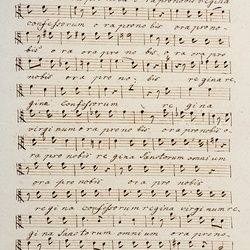 confessorum ora pro nobis ora pro no-
bis ora ora pro no bis, o ra ora pro
nobis ora pro no- bis regina re,
gina Confessorum re gina
virginum o ra pro nobis ora pro nobis o-
ra pro nobis regina Sanctorum omnium
ora pro nobis ora pro nobis
regina confessorum regina virginum re,
gina Sanctorum omnium ora pro no-